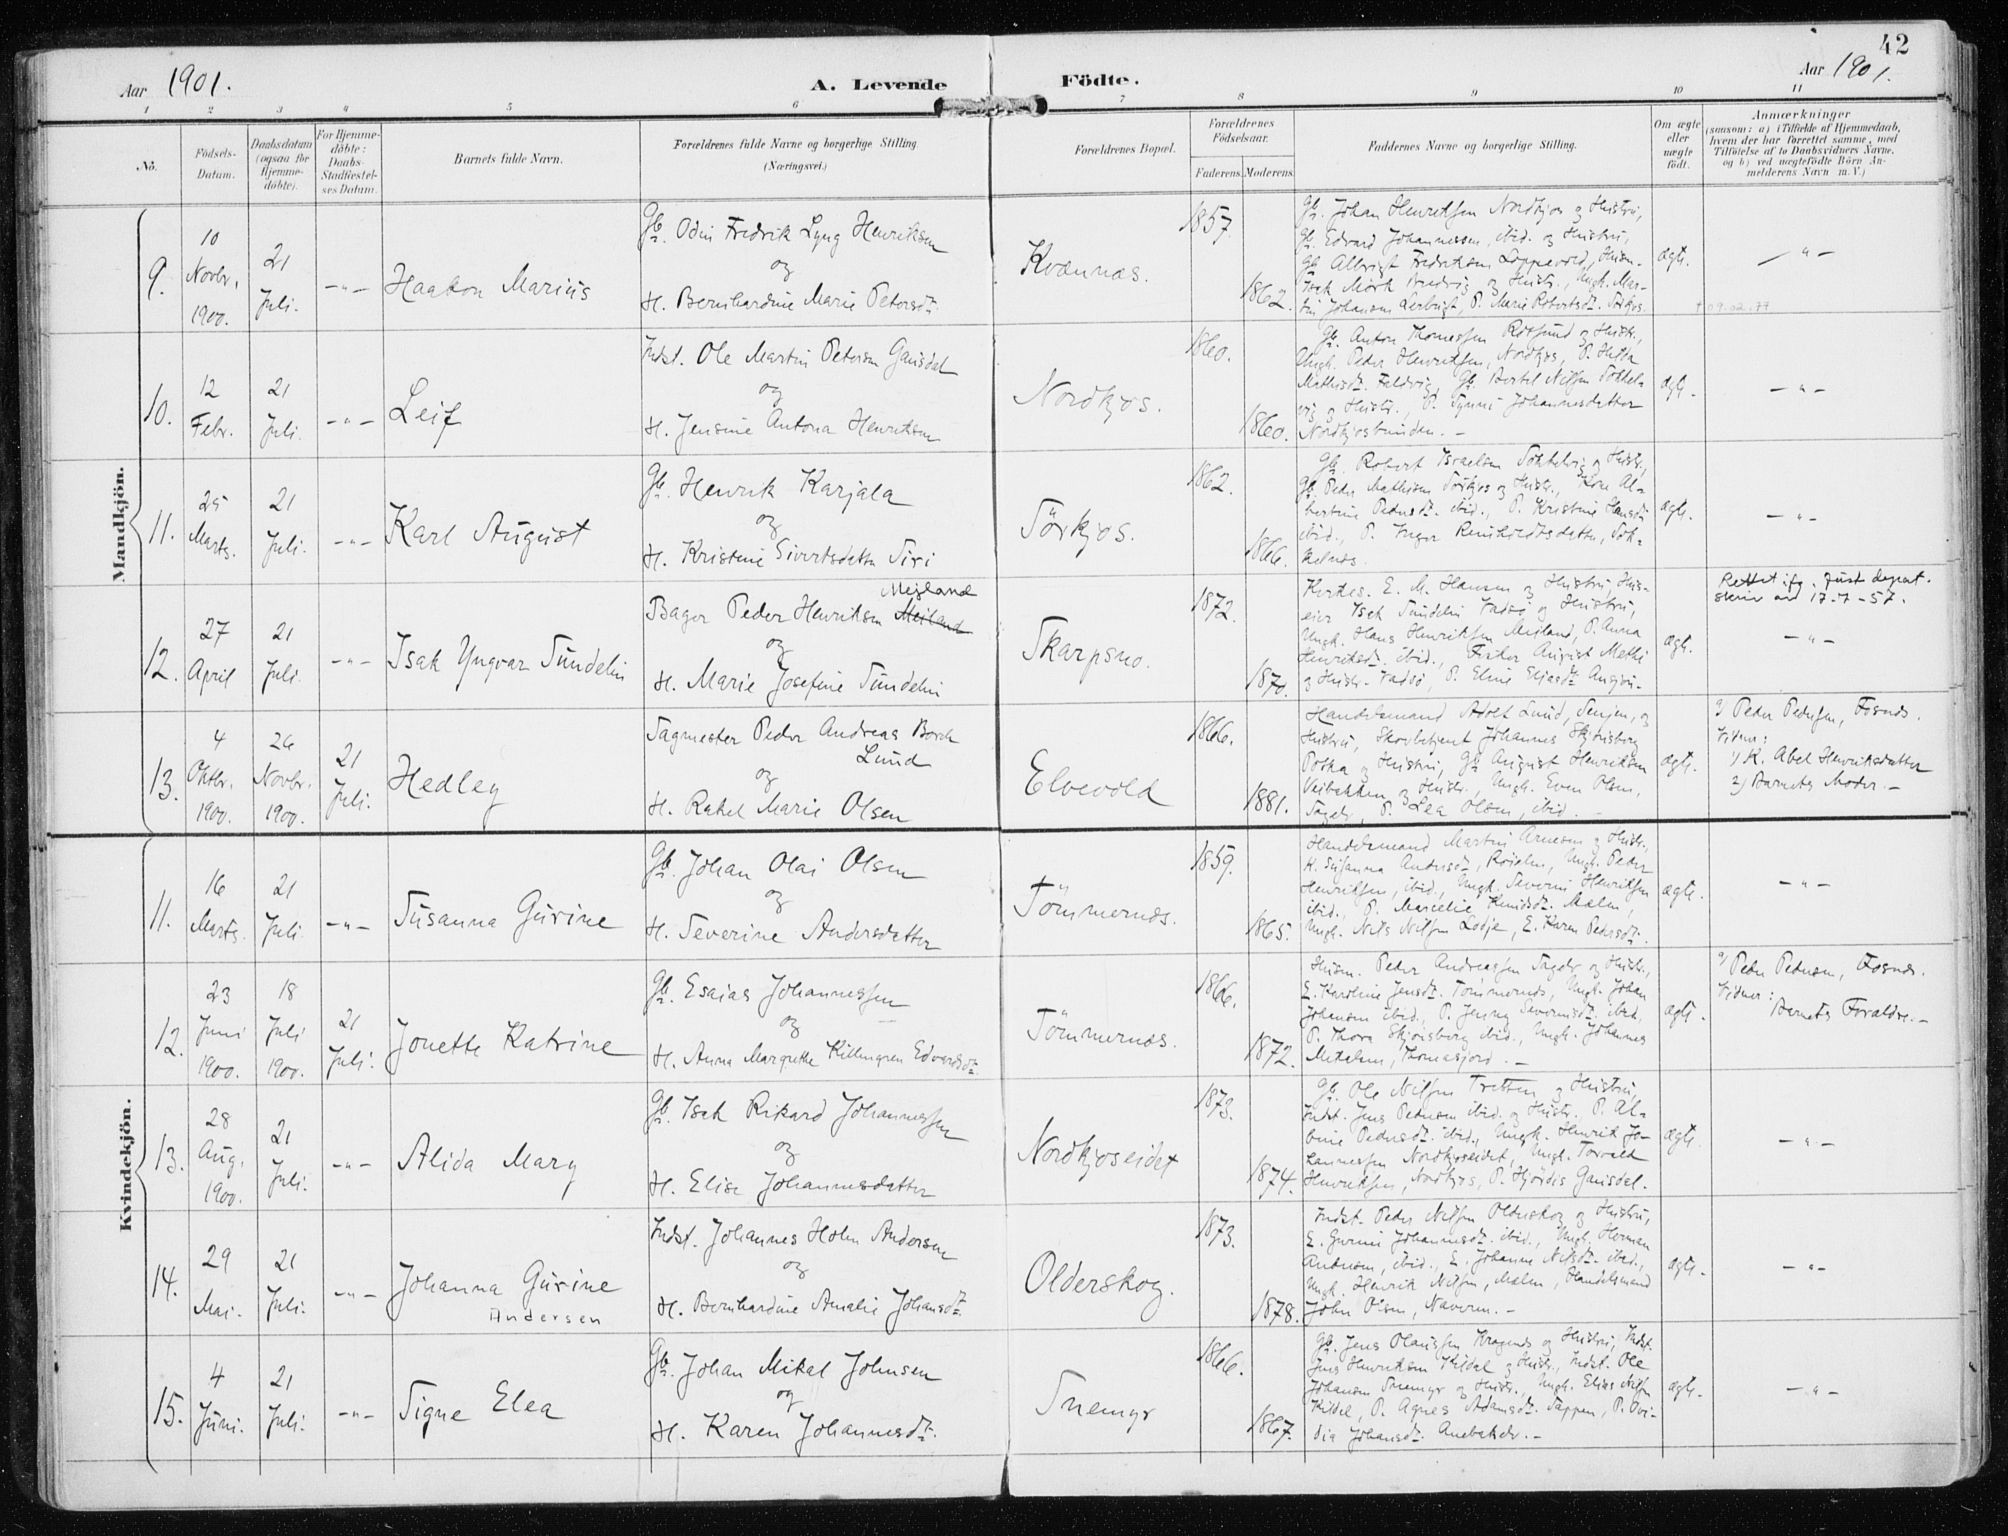 Aar 1901.
A. Levende Födte.
Aar 1901.
42
1 2 3 4 5 6 7 8 9 10 11
No.
Födsels-Datum.
Daabsdatum (ogsaa for Hjemme-döbte).
For Hjemme-döbte: Daabs-Stadfæstel-ses Datum.
Barnets fulde Navn.
Forældrenes fulde Navne og borgerlige Stilling. (Næringsvei.)
Forældrenes Bopæl.
Forældrenes Födselsaar.
Faderens. Moderens.
Faddernes Navne og borgerlige Stilling.
Om ægte eller uægte födt.
Anmærkninger
(saasom: a) i Tilfælde af Hjemmedaab,
hvem der har forrettet samme, med
Tilföielse af to Daabsvidners Navne,
og b) ved uægtefödte Börn An-
melderens Navn m. V.)
Mandkjön.
9.
10 Novbr. 1900.
21 Juli.
-"-
Haakon Marius
Gb. Odin Fredrik Lyng Henriksen
og
H. Bernhardine Marie Petersdt.
Kvænnæs.
1857.
1862.
Gb. Johan Henriksen Nordkjos og Hustru,
Gb. Edvard Johannessen, ibid. og Hustru,
Gb. Albrigt Fredriksen
og Hustr., Ungk. Mar-
tin Johansen P. Marie Robertsdt.
ægte.
-"-
† 09.02.77
10.
12 Febr.
21 Juli.
-"-
Leif
Indst. Ole Martin Petersen Gamsdal
og
H. Jensine Antona Henriksen
Nordkjos.
1860.
1860.
Gb. Anton Thomessen og Hustr.,
Ungk. Peder Henriksen, Nordkjos, P.
Gb. Bertel Nilsen
og Hustr., P. Johannesdatter
Nordkjosbunden. -
ægte.
-"-
11.
25 Marts.
21 Juli.
-"-
Karl August
Gb. Henrik Karjala
og
H. Kristine Sivertsdatter Siri
Sörkjos.
1862.
1866.
Gb. Robert Israelsen og Hustr.,
Gb. Peder Mathisen Sörkjos og Hustr., Kone Al-
bertine Pedersdt. ibid., P. Kristine Hansdt.
ibid., P. Inger
ægte.
-"-
12.
27 April
21 Juli.
-"-
Isak Yngvar Sundelin
Mejland
Bager Peder Henriksen Meiland
og
H. Marie Josefine Sundelin
Skarpsno.
1872.
1870.
E. M. Hansen og Hustru, Hus-
eier Isak Sundelin Vadsø og Hustru,
Ungk. Hans Henriksen Mejland, P. Anna
Henriksdt. ibid., Fisker August Methi
og Hustr. Vadsø, P. Eline Eliasdt.
ægte.
Rettet ifg. Just. depart.
skriv av 17-7-57.
-"-
13.
4 Oktbr. 1900.
26 Novbr. 1900.
21 Juli.
Hedley
Sagmester Peder Andreas Borch
Lund
og
H. Rakel Marie Olsen
Elvevold
1866.
1881.
Handelsmand Adolf Lund, Senjen, og
Hustru, Skovbetjent Johannes Skjönsberg
og Hustru, Gb. August Henriksen
Veibakken og Hustr., Ungk. Even Olsen,
P. Lea Olsen, ibid. -
ægte.
a) Peder Pedersen, Fosnæs.
Vidner:
1) K. Abel Henriksdatter
2) Barnets Moder. -
Kvindekjön.
11.
16 Marts.
21 Juli.
-"-
Susanna Gurine
Gb. Johan Olai Olsen
og
H. Severine Andersdatter
Tömmernæs.
1859.
1865.
Handelsmand Martin Arnesen og Hustr.,
K. Susanna Andersdt., Ungk. Peder
Henriksen, ibid., Ungk. Severin Henriksen
ibid., P. Marselie Knudsdt. Malm,
Ungk. Nils Nilsen E. Karen Pedersdt.
ægte.
-"-
12.
23 Juni 1900.
18 Juli 1900.
21 Juli.
Jonette Katrine
Gb. Esaias Johannessen
og
H. Anna Margrethe Killengren Edvardsdt.
Tömmernæs.
1866.
1872.
Husm. Peder Andreassen og Hustr.,
E. Karoline Jensdt. Tömmernæs, Ungk. Johan
Johansen ibid., P. Jenny ibid.,
P. Thora Skjönsberg ibid., Ungk. Johannes
Thomasjord. -
ægte.
a) Peder Pedersen, Fosnæs.
Vidner:
Barnets Forældre. -
13.
28 Aug. 1900.
21 Juli.
-"-
Alida Mary
Gb. Isak Rikard Johannessen
og
H. Elise Johannesdatter
Nordkjoseidet
1873.
1874.
Gb. Ole Nilsen Tretten og Hustru,
Indst. Jens Pedersen ibid. og Hustr. P. Al-
bine Pedersdt. ibid., Ungk. Henrik Jo-
hannessen Nordkjoseidet, Ungk. Torvald
Henriksen, Nordkjos, P. Hjördis Gamsdal.
ægte.
-"-
14.
29 Mai.
21 Juli.
-"-
Johanna Gurine
Andersen
Indst. Johannes Holm Andersen
og
H. Bernhardine Amalie Johansdt.
Olderskog.
1873.
1878.
Indst. Peder Nilsen Olderskog og Hustru,
E. Gurine Johannesdt. ibid., Ungk. Herman
Andersen, ibid., E. Johanne Nilsdt. ibid.,
Ungk. Henrik Nilsen, Malm, Handelsmand
John Olsen, Naveren. -
ægte.
-"-
15.
4 Juni.
21 Juli.
-"-
Signe Elea
Gb. Johan Mikal Johnsen
og
H. Karen Johannesdt.
Snemyr
1866.
1867.
Gb. Jens Olaussen og Hustru, Indst.
Jens Henriksen Kildal og Hustr., Indst. Ole
Johansen Snemyr og Hustr., Ungk. Elias Nilsen
Kildal, P. Agnes Adamsdt. Sappen, P. Ovi-
dia Johansdt. -
ægte.
-"-